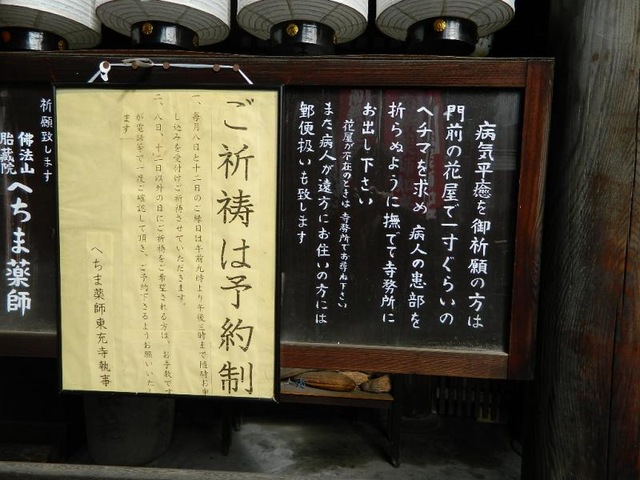 病気平癒を御祈願の方は
門前の花屋で一寸ぐらいの
ヘチマを求め 病人の患部を
折らぬように撫でて寺務所に
お出し下さい
花屋が不在のときは寺務所でお尋ね下さい
また病人が遠方にお住いの方には
郵便扱いも致します
ご祈祷は予約制
一、毎月八日と十二日のご縁日は午前九時より午後三時まで随時お申
し込みを受付けご祈祷させていただきます。
二、八日、十二日以外の日にご祈祷をご希望される方は、お手数です
が電話等で一度ご確認して頂き、ご予約下さるようお願いいたし
ます
へちま薬師東充寺執事
祈願致します
佛法山
胎蔵院
へちま薬師